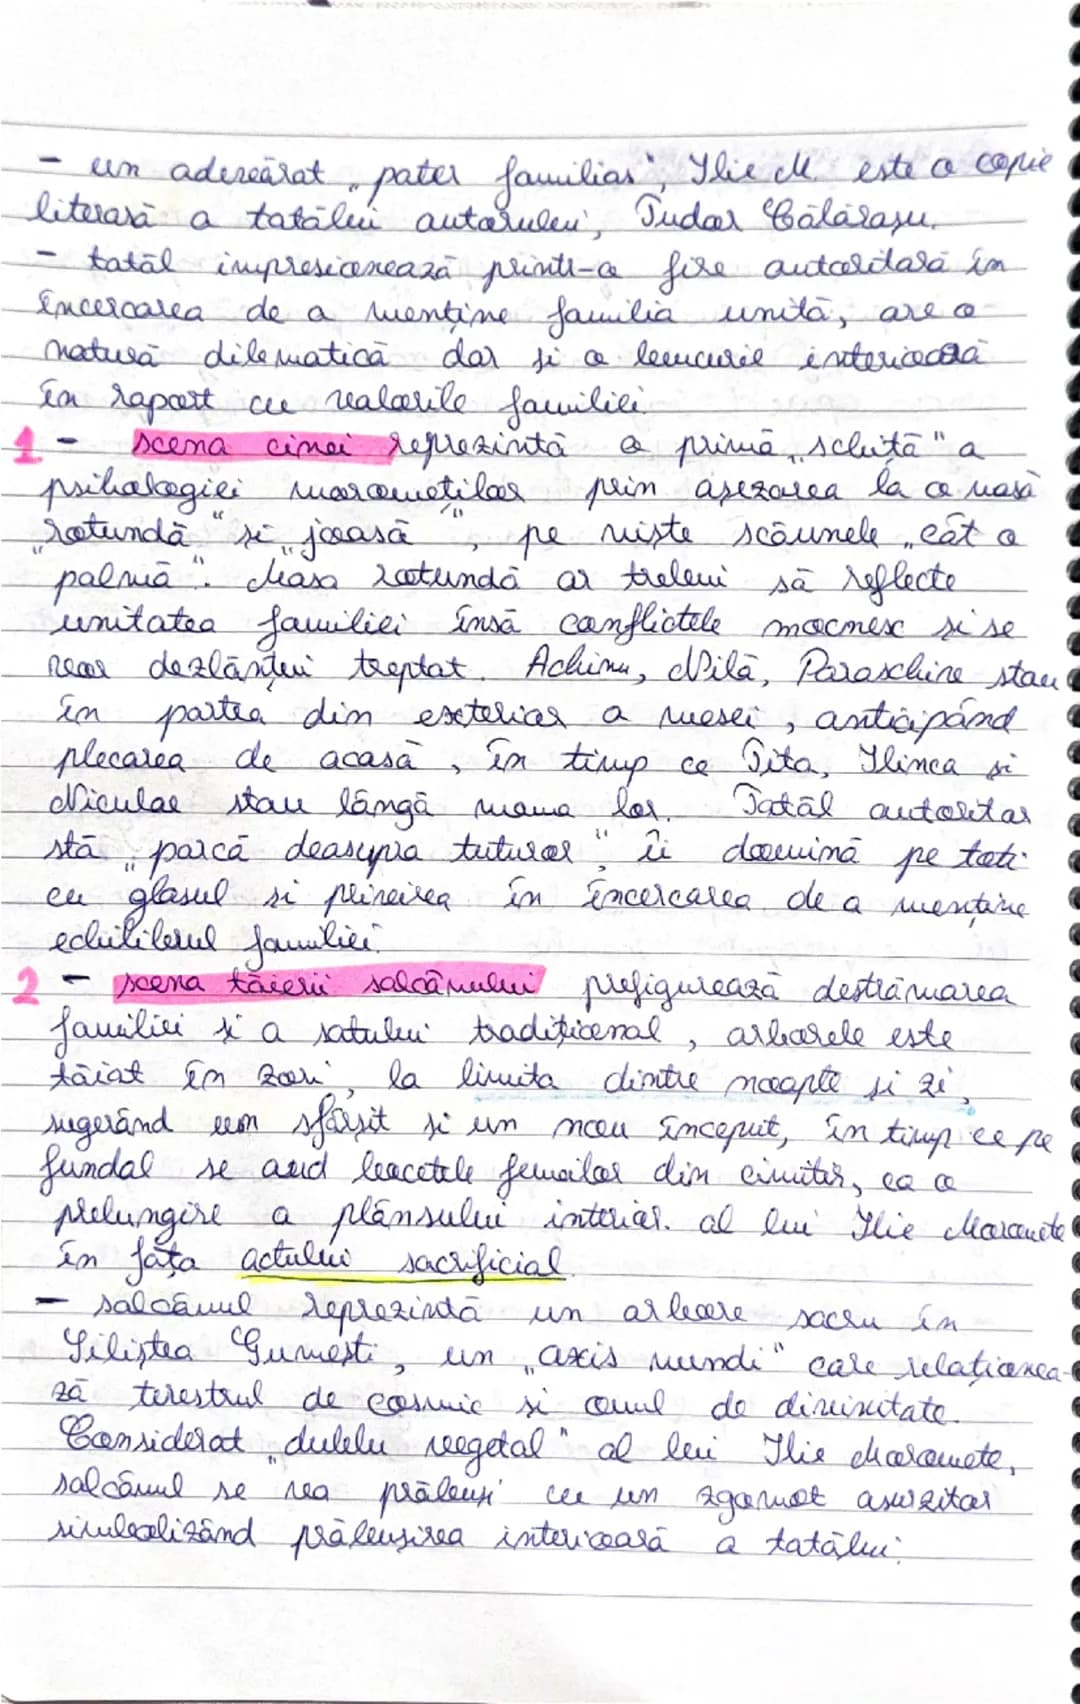 - un adevărat „pater familias", Ilie M. este o copie
literară a tatălui autorului, Tudor Călărașu.
- tatăl impresionează printr-o fire autoritară în
încercarea de a menține familia unită, are o
natură dilematică dar și o bucurie interioară
în raport cu valorile familiei.
1 - scena cinei reprezintă o primă „schiță" a
psihologiei moromeților prin așezarea la o masă
„rotundă" și „joasă", pe niște scăunele „cât o
palmă". Masa rotundă ar trebui să reflecte
unitatea familiei însă conflictele mocnesc și se
vor dezlănțui treptat. Achim, Nilă, Paraschiv stau
în partea din exterior a mesei, anticipând
plecarea de acasă, în timp ce Tita, Ilinca și
Niculae stau lângă mama lor. Tatăl autoritar
stă „parcă deasupra tuturor", îi domină pe toți
cu glasul și privirea în încercarea de a menține
echilibrul familiei.
2 - scena tăierii salcâmului prefigurează destrămarea
familiei și a satului tradițional, arborele este
tăiat în zori, la limita dintre noapte și zi,
sugerând un sfârșit și un nou început, în timp ce pe
fundal se aud bocetele femeilor din cimitir, ca o
prelungire a plânsului interior al lui Ilie Moromete
în fața actului sacrificial.
- salcâmul reprezintă un arbore sacru în
Siliștea Gumești, un „axis mundi" care relaționea-
ză terestrul de cosmic și omul de divinitate.
Considerat „dublu vegetal" al lui Ilie Moromete,
salcâmul se va prăbuși cu un zgomot asurzitor
simbolizând prăbușirea interioară a tatălui.